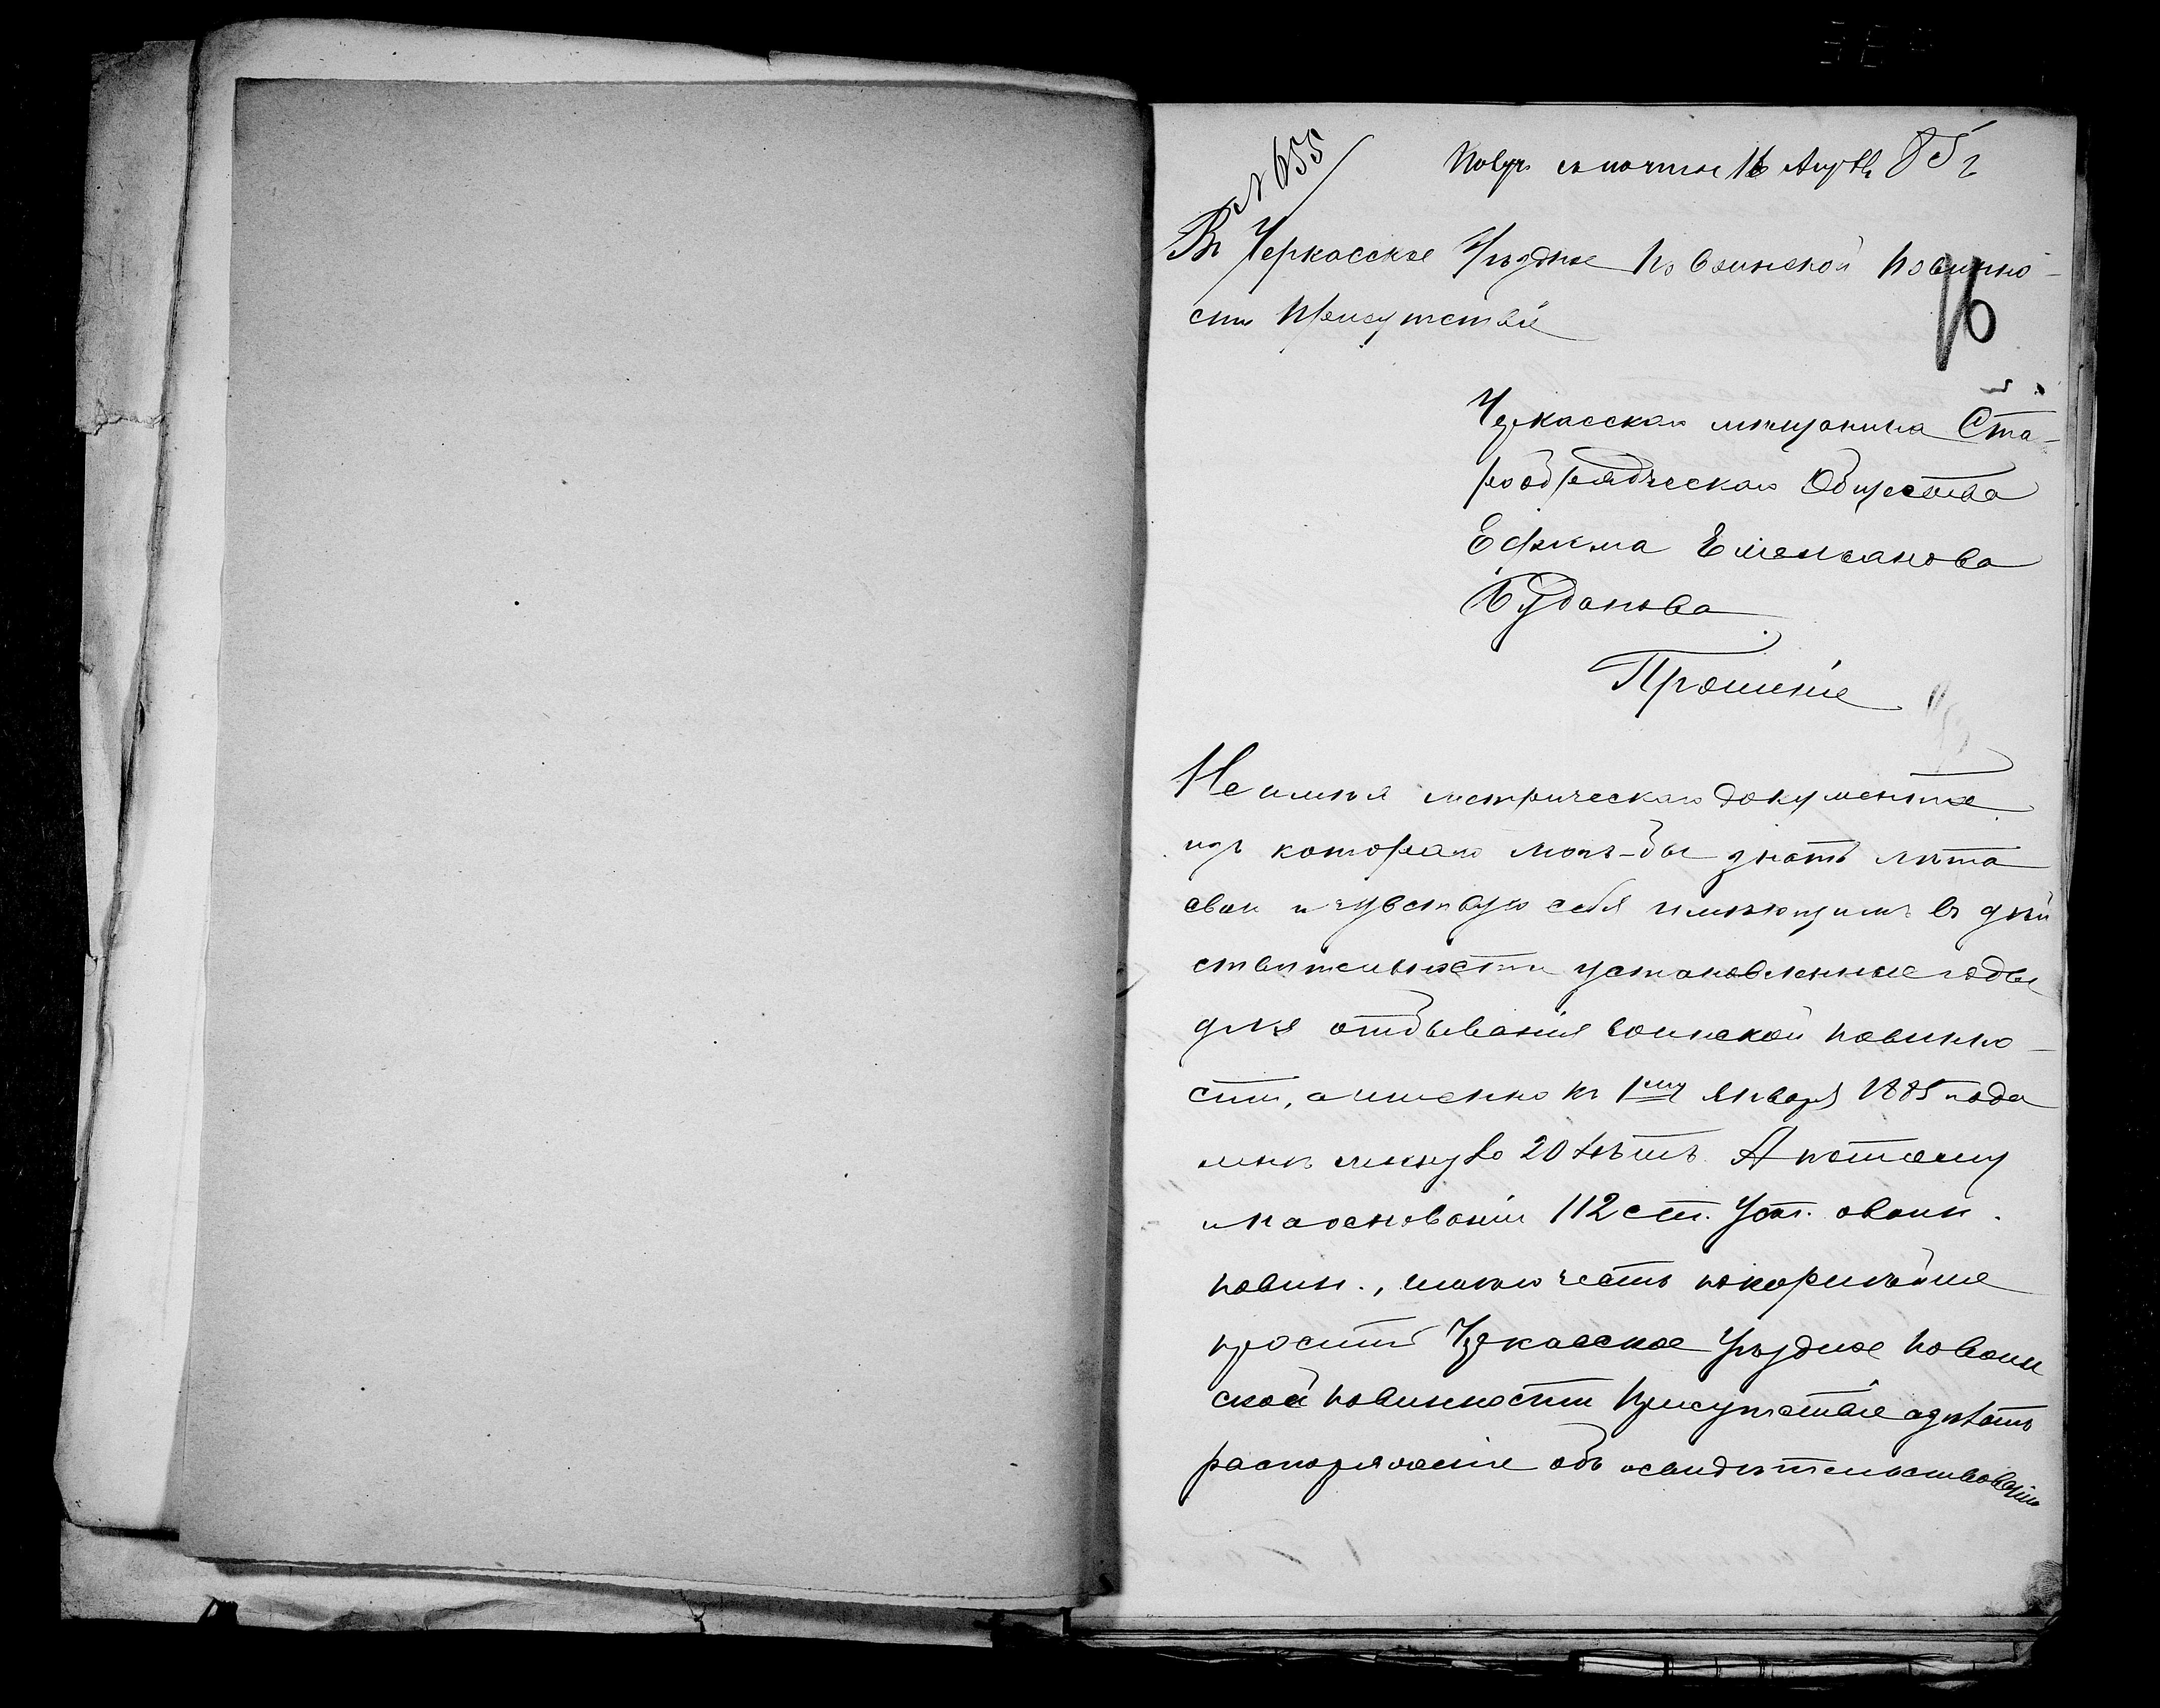 № 655
Получ. съ почты 16 Апрѣл 85 г
Въ Черкасское Уѣздное по воинской повинно-
сти Присутствіе
16
Черкасскаго мѣщанина Ста-
рообрядческаго Общества
Ефима Емельянова
Буданова
Прошеніе
Не имѣя метрическаго документа
изъ котораго могъ-бы знать лѣта
свои и чувствую себя имѣющимъ въ дѣй
ствительности установленные годы
для отбыванія воинской повинно-
сти, а именно къ 1му Января 1885 года
мнѣ минуло 20 лѣтъ. А потому
и на основаніи 112 ст. Уст. о воин.
повин., имѣю честь покорнѣйше
просить Черкасское Уѣздное по воин
ской повинности Присутствіе сдѣлать
распоряженіе объ освидѣтельствованіи